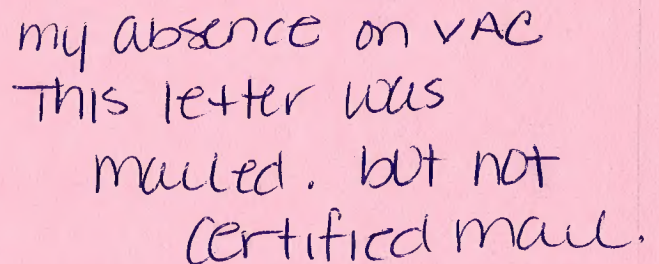 my absence on VAC
This letter was
mailed. but not
certified mail.